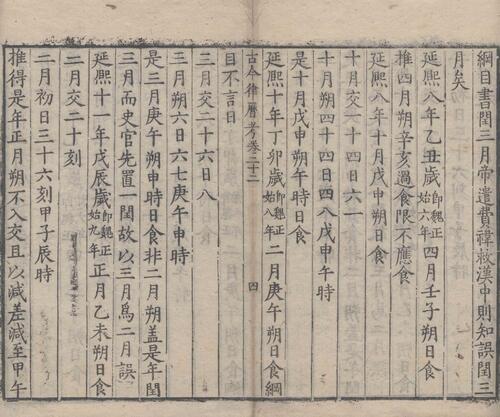 綱目書閏三月帝遣費禕救漢中則知誤閏三
月矣
延熙八年乙丑歲即魏正始六年四月壬子朔日食
推四月朔辛亥過食限不應食
延熙八年十月戊申朔日食
十月交一十四日六一
十月朔四十四日四八戊申午時
是十月戊申朔午時日食
延熙十年丁卯歲即魏正始八年二月庚午朔日食綱
古今律曆考卷二十二
四
目不言日
三月交二十六日八
三月朔六日六七庚午申時
是三月庚午朔申時日食非二月朔蓋是年閏
三月而史官先置一閏故以三月爲二月誤
延熙十一年戊辰歲即魏正始九年正月乙未朔日食
二月交二十刻
二月初日三十六刻甲子辰時
推得是年正月朔不入交且以減差減至甲午